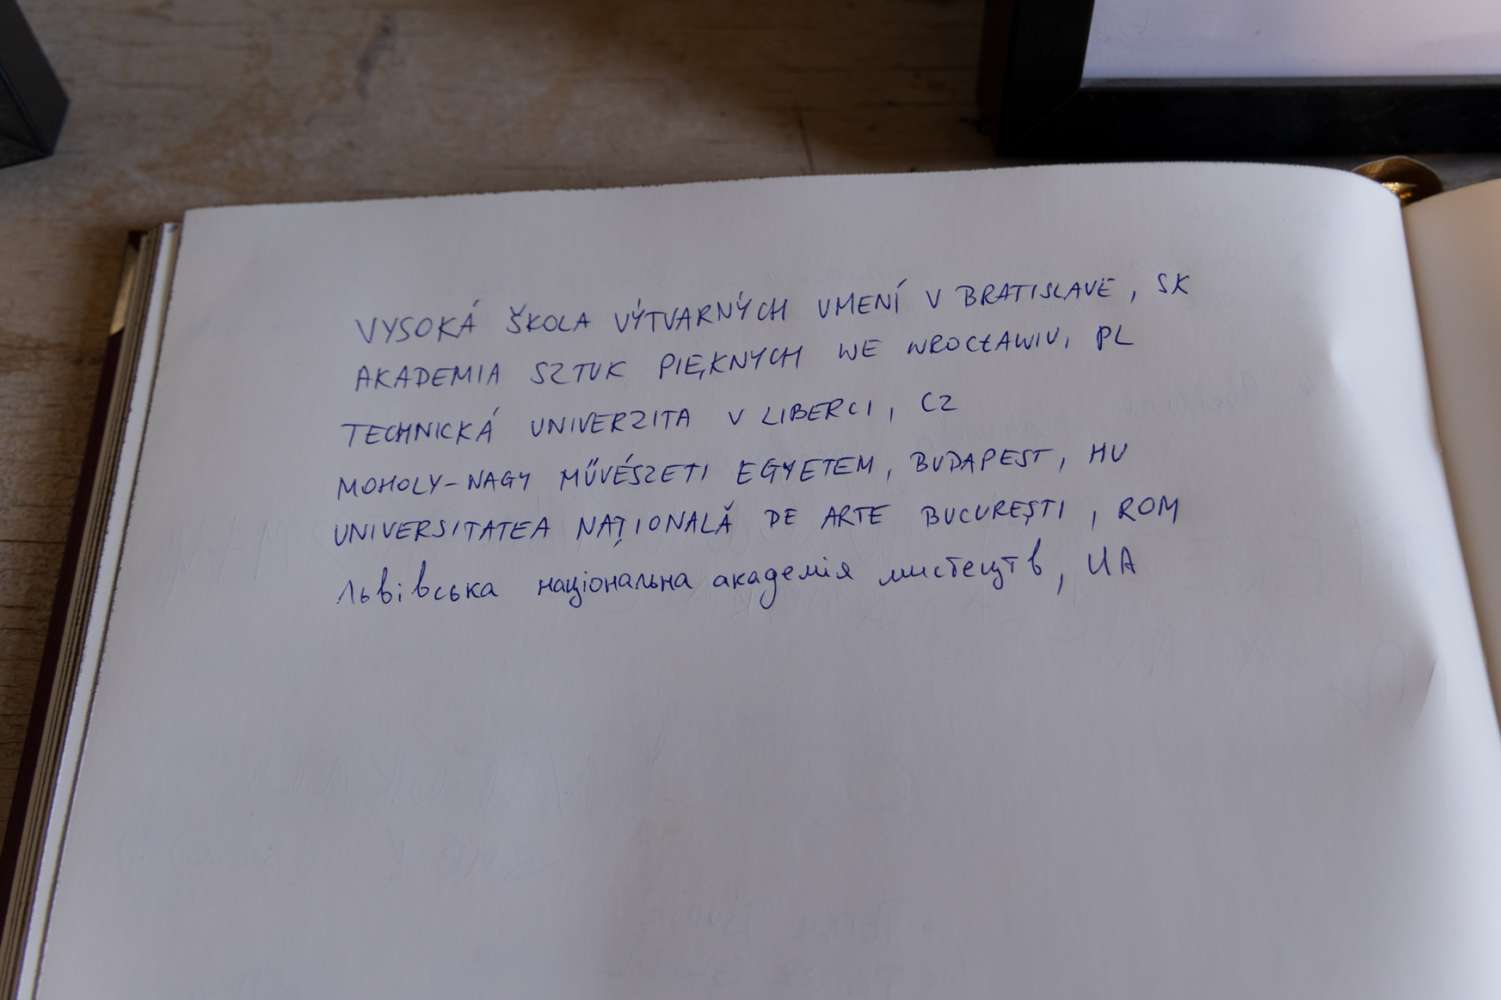 VYSOKÁ ŠKOLA VÝTVARNÝCH UMENÍ V BRATISLAVE, SK
AKADEMIA SZTUK PIĘKNYCH WE WROCŁAWIU, PL
TECHNICKÁ UNIVERZITA V LIBERCI, CZ
MOHOLY-NAGY MŰVÉSZETI EGYETEM, BUDAPEST, HU
UNIVERSITATEA NAȚIONALĂ DE ARTE BUCUREȘTI, ROM
Львівська національна академія мистецтв, UA